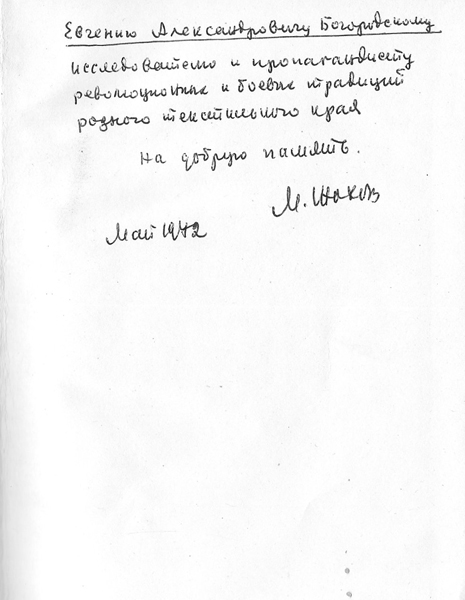 Евгению Александровичу Богородскому
исследователю и пропагандисту
революционных и боевых традиций
родного текстильного края
На добрую память.
М.
Май